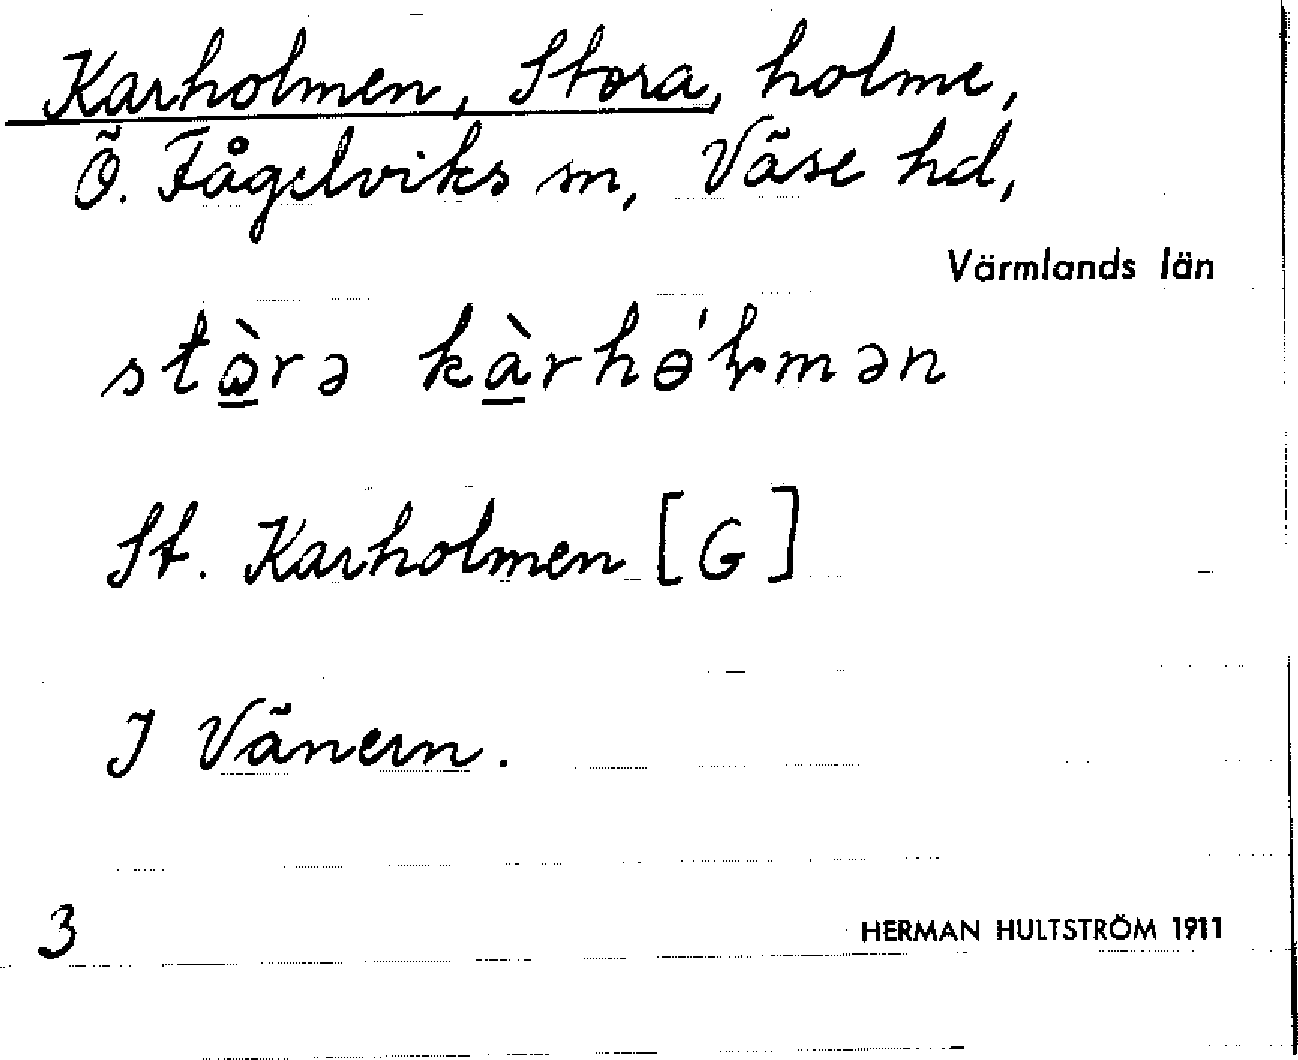 Karholmen, Stora, holme,
Ö. Fågelviks sn, Väse hd,
Värmlands län
stò̱rə kà̱rhɵ́ɫmən
St. Karholmen [G]
I Vänern.
3
HERMAN HULTSTRÖM 1911